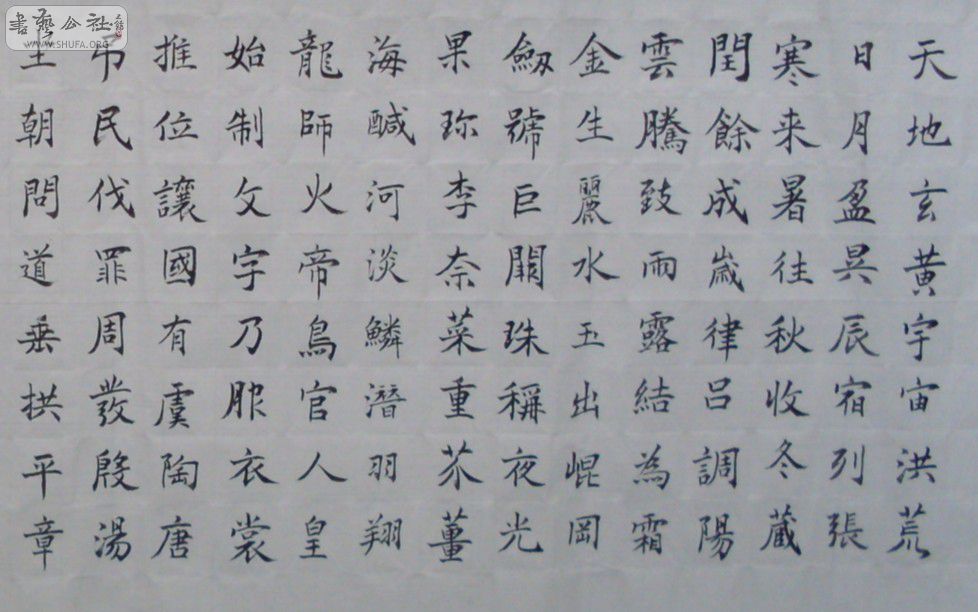 天地玄黃宇宙洪荒
日月盈昃辰宿列張
寒来暑往秋收冬藏
閏餘成歲律吕調陽
雲騰致雨露結為霜
金生麗水玉出崐岡
劒號巨闕珠稱夜光
果珎李柰菜重芥薑
海鹹河淡鱗潛羽翔
龍師火帝鳥官人皇
始制文字乃服衣裳
推位讓國有虞陶唐
弔民伐罪周發殷湯
坐朝問道垂拱平章
書藝公社
WWW.SHUFA.ORG